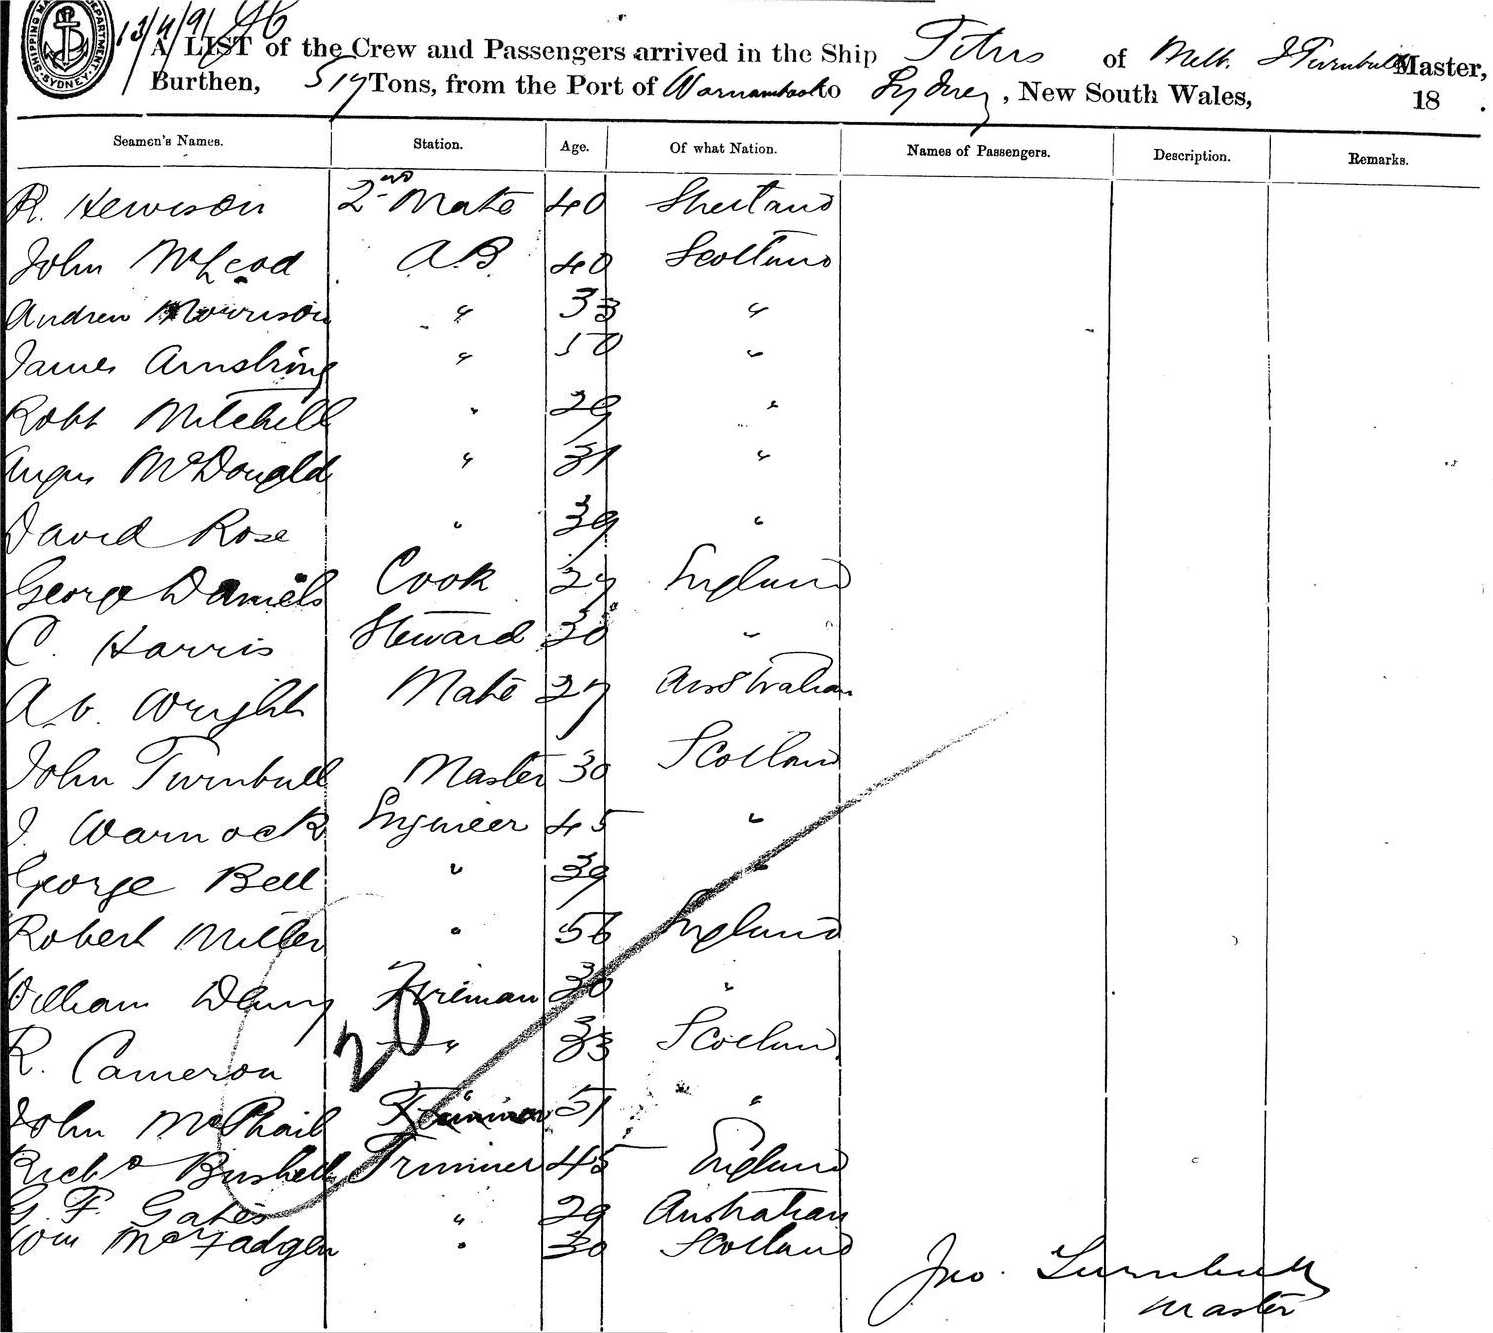 SHIPPING MA DEPARTMENT. SYDNEY.
13/4/91
A LIST of the Crew and Passengers arrived in the Ship Titus of Melb. J Turnbull Master,
Burthen, 517 Tons, from the Port of Warnambool to Sydney, New South Wales, 18 .
Seamen's Names. Station. Age. Of what Nation. Names of Passengers. Description. Remarks.
R. Hewison 2nd Mate 40 Shetland
John McLeod A.B. 40 Scotland
Andrew Morrison " 33 "
James Armstrong " 50 "
Robt Mitchell " 29 "
Angus McDonald " 31 "
David Rose " 39 "
George Daniels Cook 27 England
C. Harris Steward 30 "
A. V. Wright Mate 27 Australian
John Turnbull Master 30 Scotland
J. Warnock Engineer 45 "
George Bell " 39 "
Robert Miller " 56 England
William Denny Fireman 30 "
R. Cameron " 33 Scotland
20
John McPhail " 51 "
Richd Bushell Trimmer 45 England
G. F. Gates " 29 Australian
Wm McFadgen " 30 Scotland
Jno. Turnbull
Master